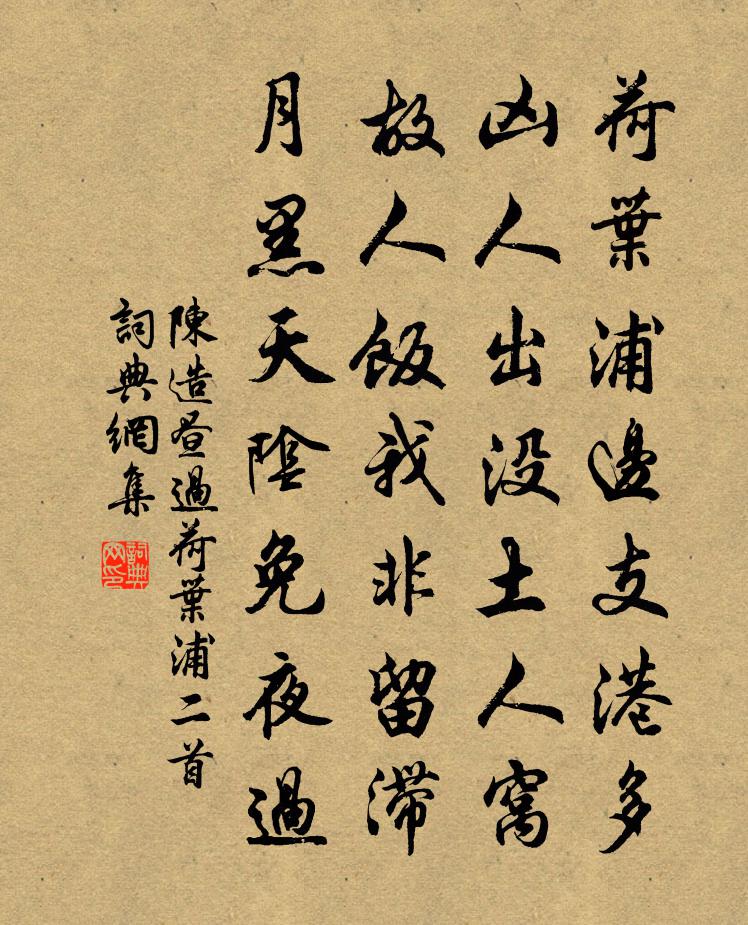 荷葉浦邊支港多
凶人出没土人窩
故人飯我非留滯
月黑天陰免夜過
陳造晝過荷葉浦二首
詞典網集
詞典网印